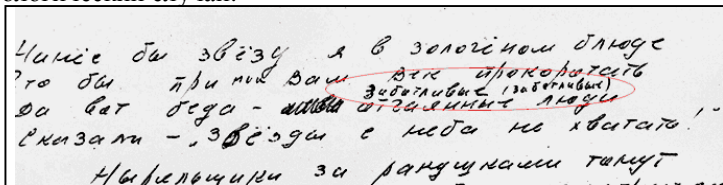 бы звёзду я в золочёном блюде
Что бы при Вам век прокоротать
заботливые (заботливые)
Да вот беда - отчаянные люди
Сказали - "Звёзды с неба не хватать!"
Ныряльщики за ракушками тонут